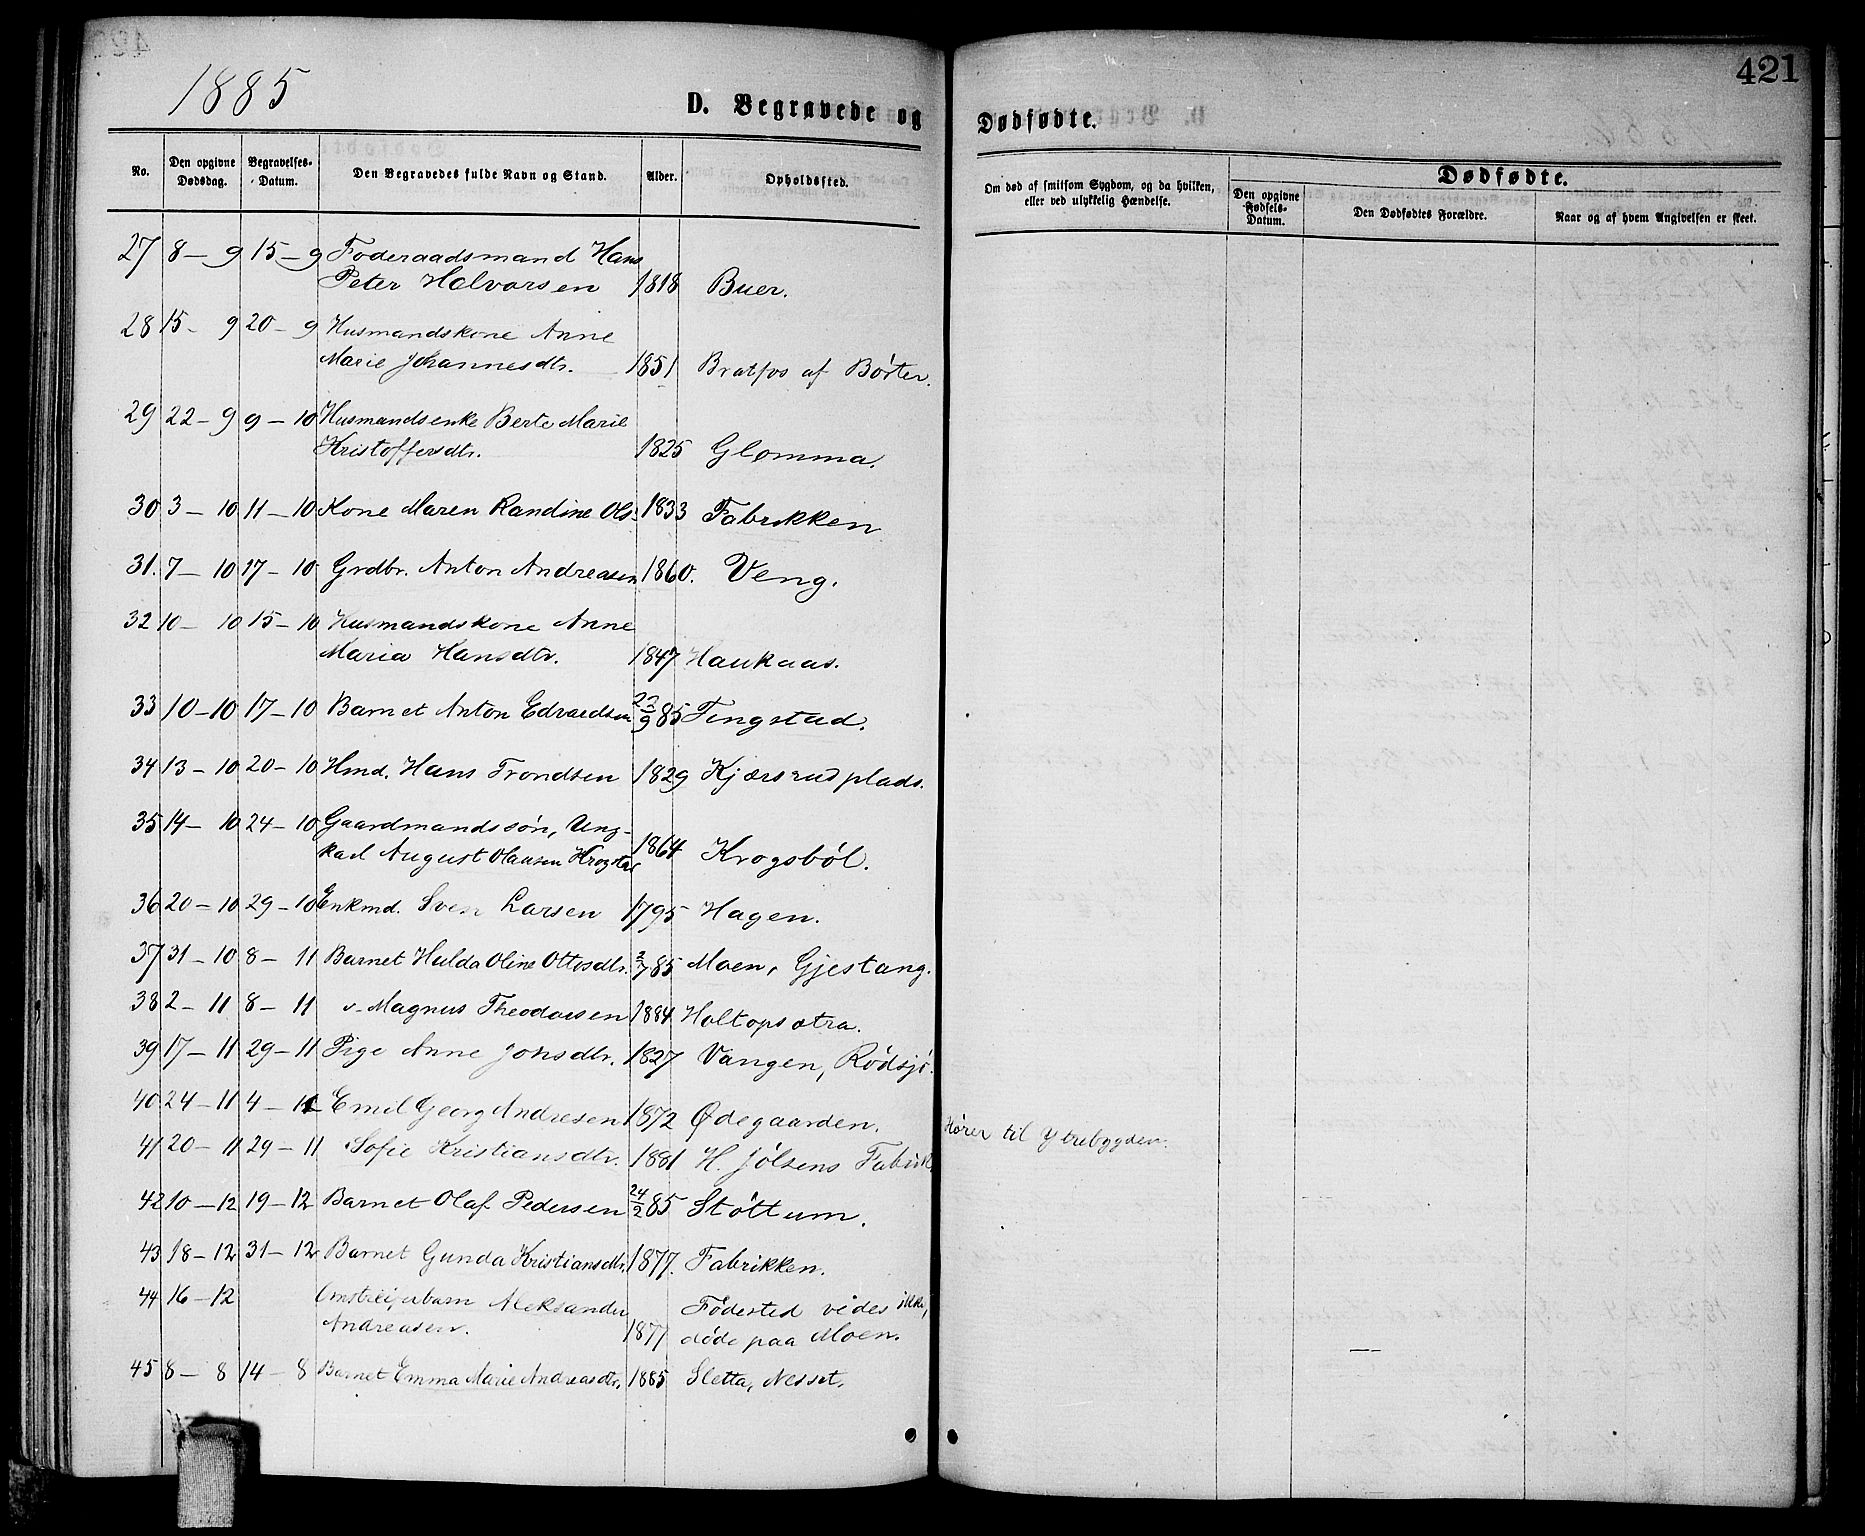 421
1885
D. Begravede og
Dødfødte.
No.
Den opgivne Dødsdag.
Begravelses-Datum.
Den Begravedes fulde Navn og Stand.
Alder.
Opholdssted.
Om død af smitsom Sygdom, og da hvilken, eller ved ulykkelig Hændelse.
Dødfødte.
Den opgivne Fødsels-Datum.
Den Dødfødtes Forældre.
Naar og af hvem Angivelsen er skeet.
27 8 - 9 15 - 9 Føderaadsmand Hans
Peter Halvorsen 1818 Buer.
28 15 - 9 20 - 9 Husmandskone Anne
Marie Johannesdtr. 1851 Bratfos af Børter.
29 22 - 9 9 - 10 Husmandsenke Berte Marie
Kristoffersdtr. 1825 Glomma.
30 3 - 10 11 - 10 Kone Maren Randine Ols: 1833 Fabrikken
31. 7 - 10 17 - 10 Grdbr. Anton Andreasen 1860. Veng.
32 10 - 10 15 - 10 Husmandskone Anne
Maria Hansdtr. 1847 Haukaas.
33 10 - 10 17 - 10 Barnet Anton Edvardsen 22/9 85 Tingstad.
34 13 - 10 20 - 10 Hmd. Hans Trondsen 1829 Kjærsrud plads.
35 14 - 10 24 - 10 Gaardmandssøn, Ung-
karl August Olausen Krogstad 1864 Krogsbøl.
36 20 - 10 29 - 10 Enkmd. Sven Larsen 1795 Hagen.
37 31 - 10 8 - 11 Barnet Hulda Oline Ottosdtr. 2/7 85 Moen, Gjestang.
38 2 - 11 8 - 11 v. Magnus Theodorsen 1884 Holtopsætra.
39 17 - 11 29 - 11 Pige Anne Johsdtr. 1827 Vangen, Rødsjø.
40 24 - 11 4 - Emil Georg Andresen 1872 Ødegaarden.
Hører til Ytrebygden.
41 20 - 11 29 - 11 Sofie Kristiansdtr. 1881 H. Jølsens Fabrik.
42 10 - 12 19 - 12 Barnet Olaf Pedersen 24/2 85 Støttum.
43 18 - 12 31 - 12 Barnet Gunda Kristiansdtr. 1877. Fabrikken.
44 16 - 12 Omstreiferbarn Aleksander Fødested vides ikke,
Andreasen. 1877 døde paa Moen.
45 8 - 8 14 - 8 Barnet Emma Marie Andreasdtr. 1885 Sletta, Nesset.